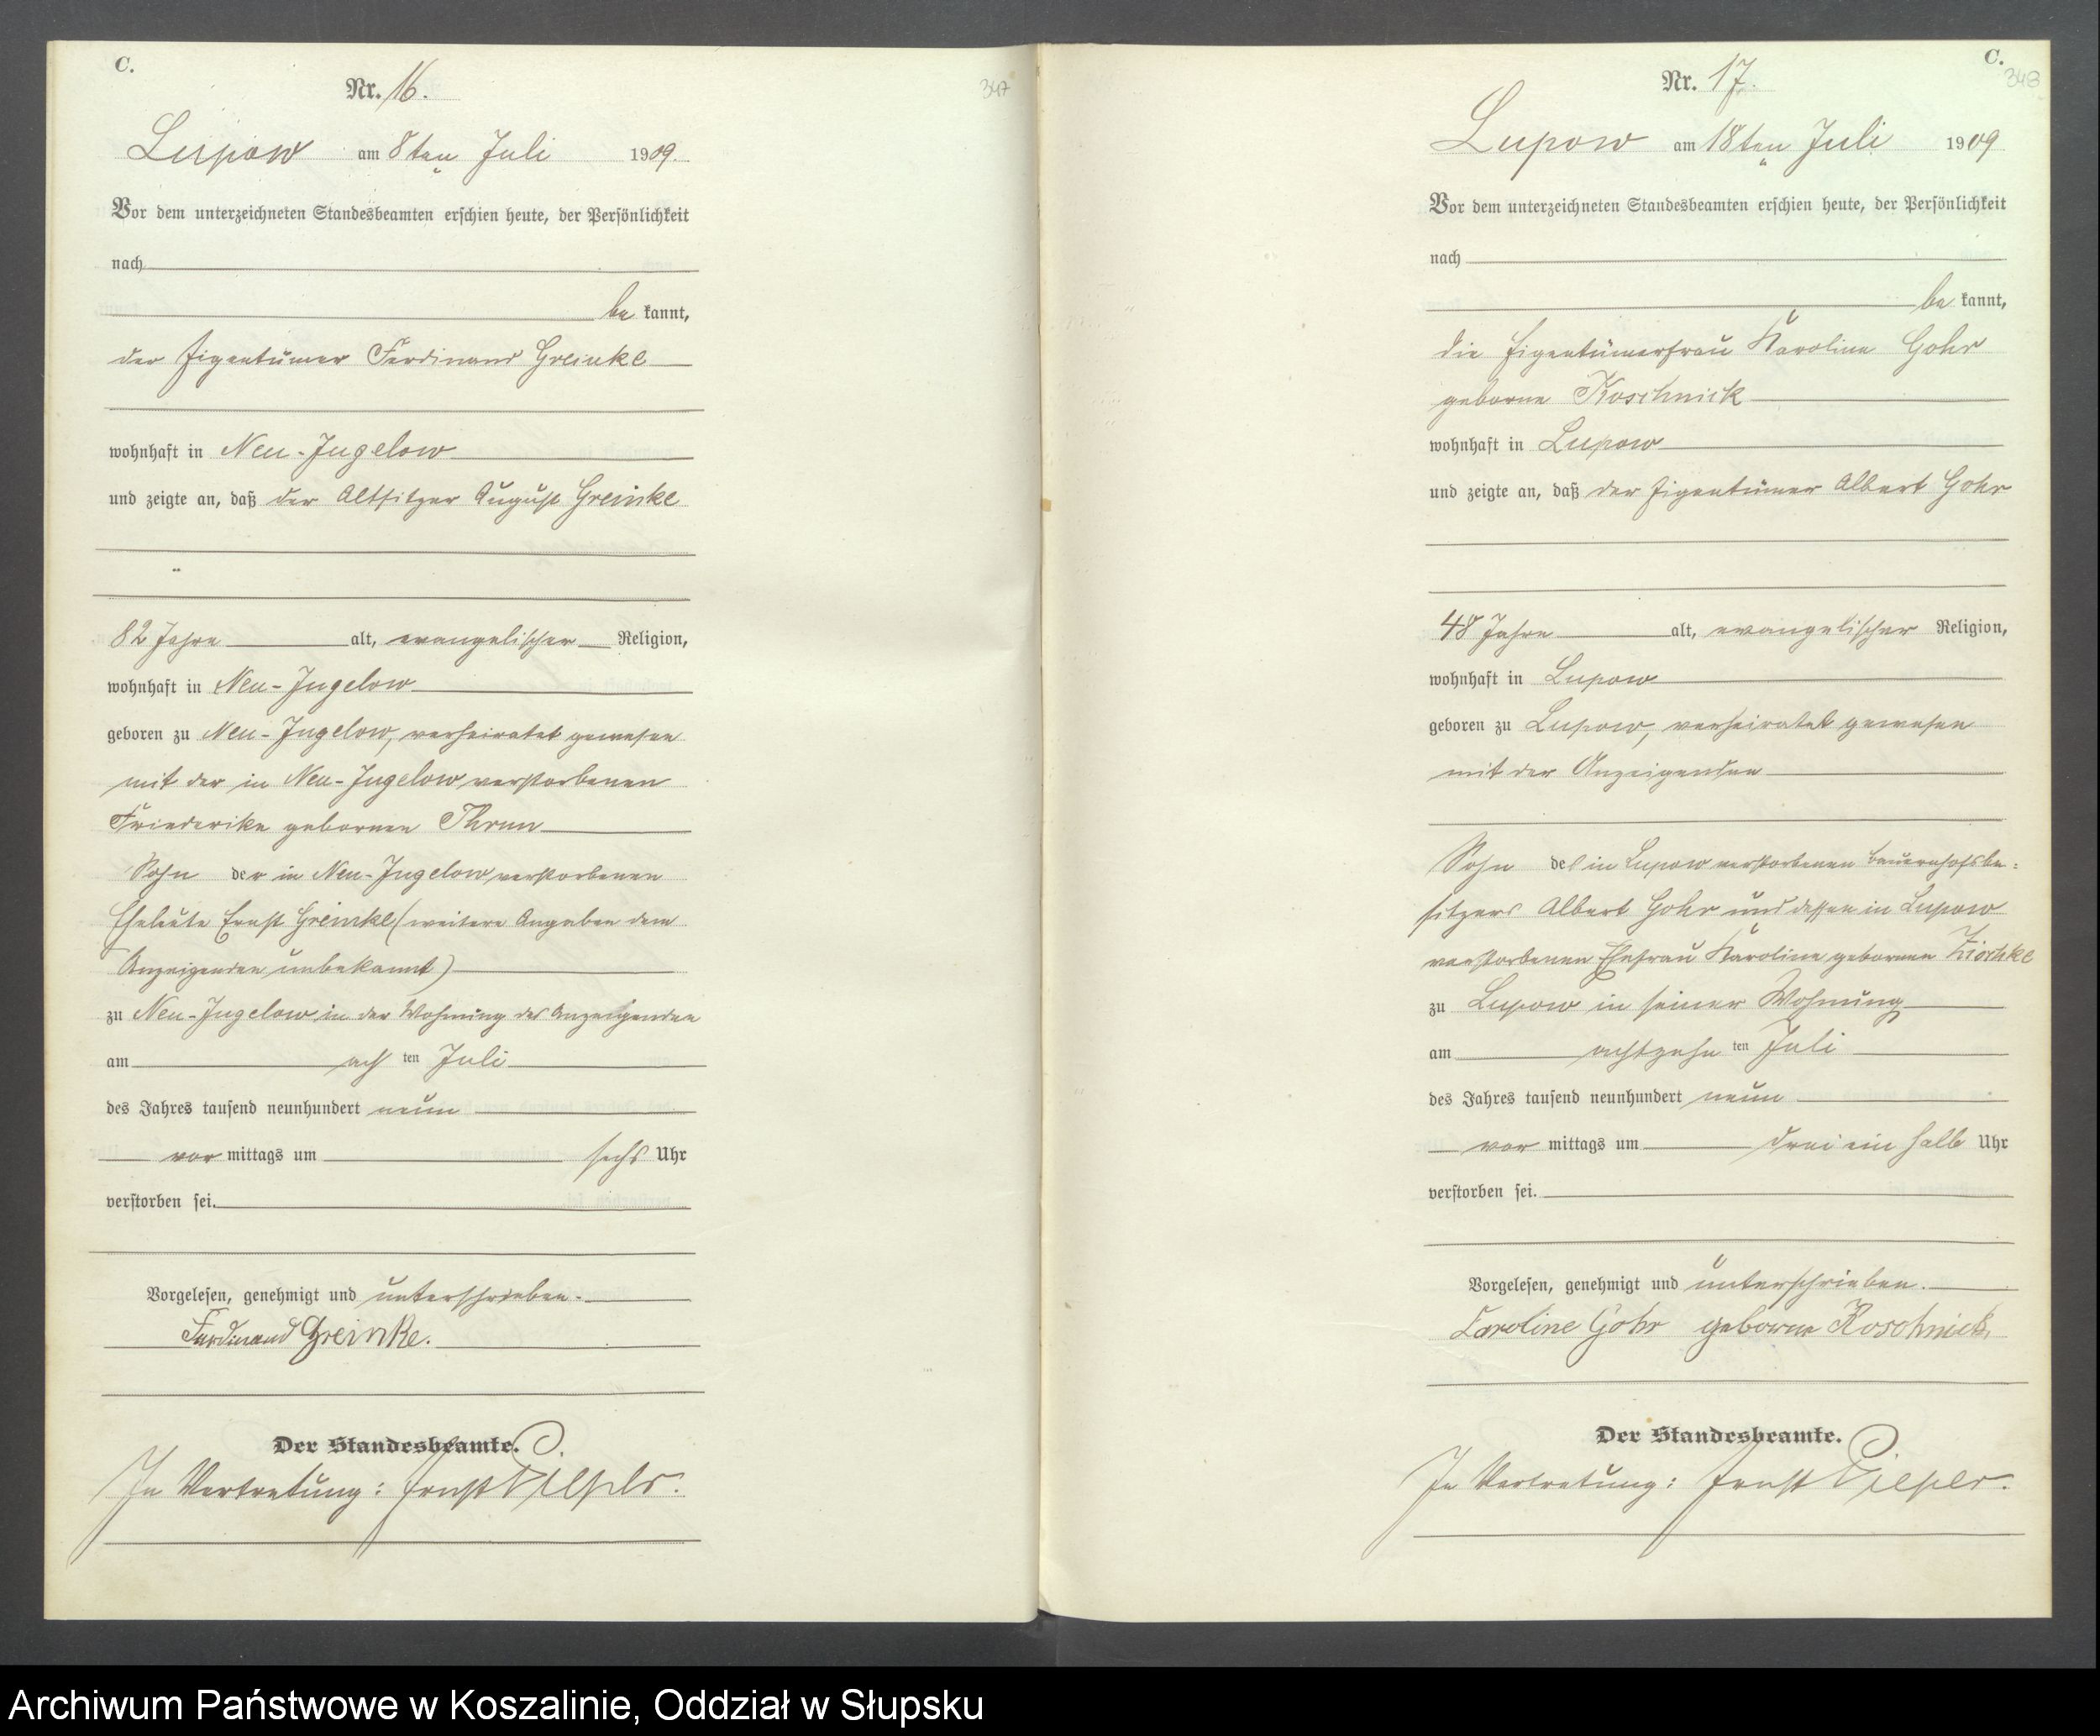 C.
Nr. 16.
347
Lupow am 8ten Juli 1909.
Vor dem unterzeichneten Standesbeamten erschien heute, der Persönlichkeit
nach
be kannt,
der Eigentümer Ferdinand Greinke
wohnhaft in Neu-Jugelow
und zeigte an, daß der Altsitzer August Greinke
82 Jahre alt, evangelischer Religion,
wohnhaft in Neu-Jugelow
geboren zu Neu-Jugelow, verheiratet gewesen
mit der in Neu-Jugelow verstorbenen
Friederike gebornen Thrun
Sohn der in Neu-Jugelow verstorbenen
Eheleute Ernst Greinke (weitere Angaben dem
Anzeigenden unbekannt)
zu Neu-Jugelow in der Wohnung des Anzeigenden
am ach ten Juli
des Jahres tausend neunhundert neun
vor mittags um sechs Uhr
verstorben sei.
Vorgelesen, genehmigt und unterschrieben.
Ferdinand Greinke.
Der Standesbeamte.
In Vertretung: Ernst Pieper.
C.
Nr. 17.
348
Lupow am 18ten Juli 1909
Vor dem unterzeichneten Standesbeamten erschien heute, der Persönlichkeit
nach
be kannt,
die Eigentümerfrau Karoline Gohr
geborne Koschnick
wohnhaft in Lupow
und zeigte an, daß der Eigentümer Albert Gohr
48 Jahre alt, evangelischer Religion,
wohnhaft in Lupow
geboren zu Lupow, verheiratet gewesen
mit der Anzeigenden
Sohn des in Lupow verstorbenen Bauernhofsbe=
sitzers Albert Gohr und dessen in Lupow
verstorbenen Ehefrau Karoline gebornen
zu Lupow in seiner Wohnung
am achtzehn ten Juli
des Jahres tausend neunhundert neun
vor mittags um drei ein halb Uhr
verstorben sei.
Vorgelesen, genehmigt und unterschrieben.
Caroline Gohr geborne Koschnick
Der Standesbeamte.
In Vertretung: Ernst Pieper.
Archiwum Państwowe w Koszalinie, Oddział w Słupsku